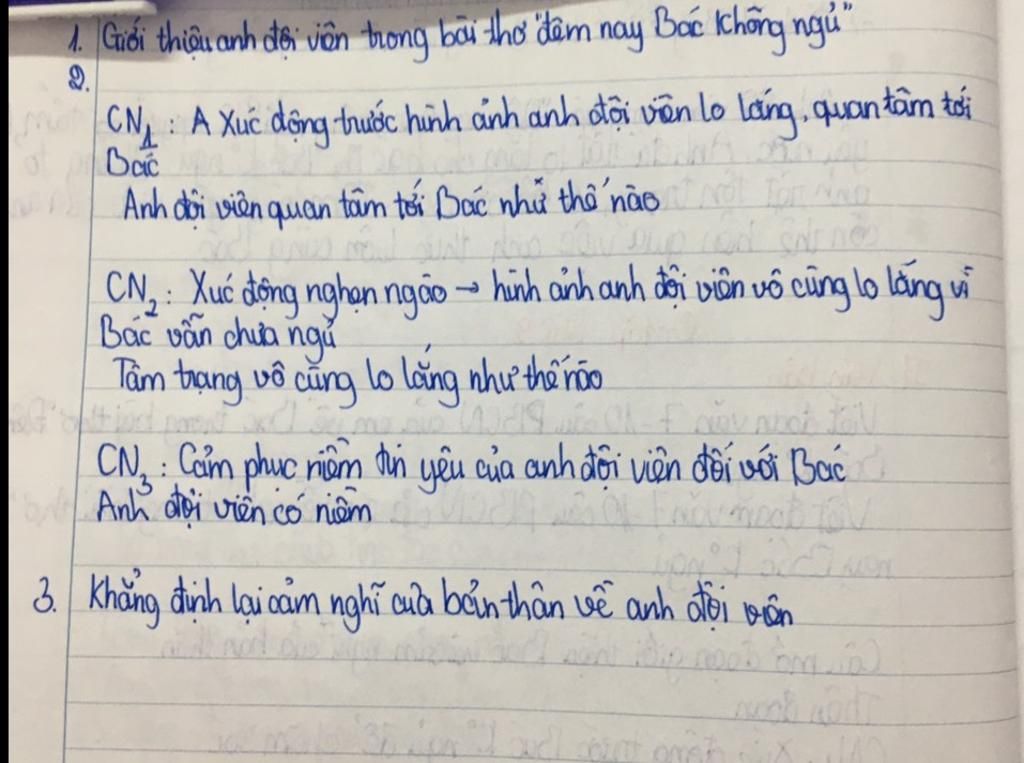 1. Giới thiệu anh đội viên trong bài thơ "đêm nay Bác không ngủ"
2.
CN1: A Xúc động trước hình ảnh anh đội viên lo lắng, quan tâm tới
Bác
Anh đội viên quan tâm tới Bác như thế nào
CN2: Xúc động nghẹn ngào → hình ảnh anh đội viên vô cùng lo lắng vì
Bác vẫn chưa ngủ
Tâm trạng vô cùng lo lắng như thế nào
CN3: Cảm phục niềm tin yêu của anh đội viên đối với Bác
Anh đội viên có niềm
3. Khẳng định lại cảm nghĩ của bản thân về anh đội viên